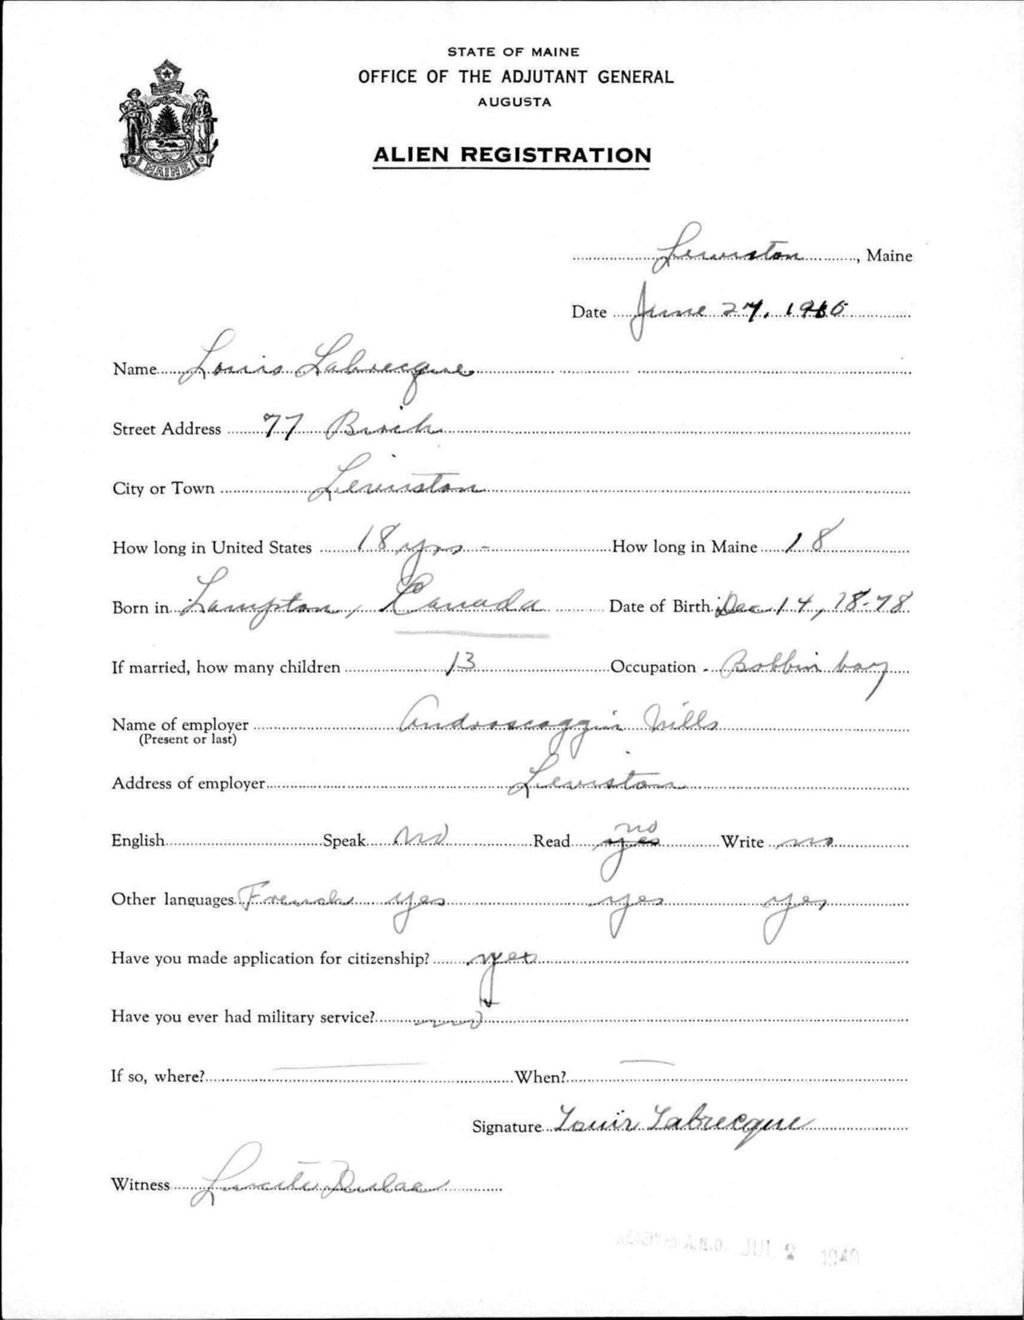 STATE OF MAINE
OFFICE OF THE ADJUTANT GENERAL
AUGUSTA
ALIEN REGISTRATION
MAINE
Lewiston, Maine
Date June 27, 1940
Name Louis Labrecque
Street Address 77 Birch
City or Town Lewiston
How long in United States 18 yrs - How long in Maine 18
Born in Lampton, Canada Date of Birth Dec 14, 1878
If married, how many children 13 Occupation Bobbin boy
Name of employer Androscoggin Mills
(Present or last)
Address of employer Lewiston
English Speak No Read yes no Write no
Other languages French yes yes yes
Have you made application for citizenship? yes
Have you ever had military service? no
If so, where? When?
Signature Louis Labrecque
Witness Dulac
JUL 2 1940